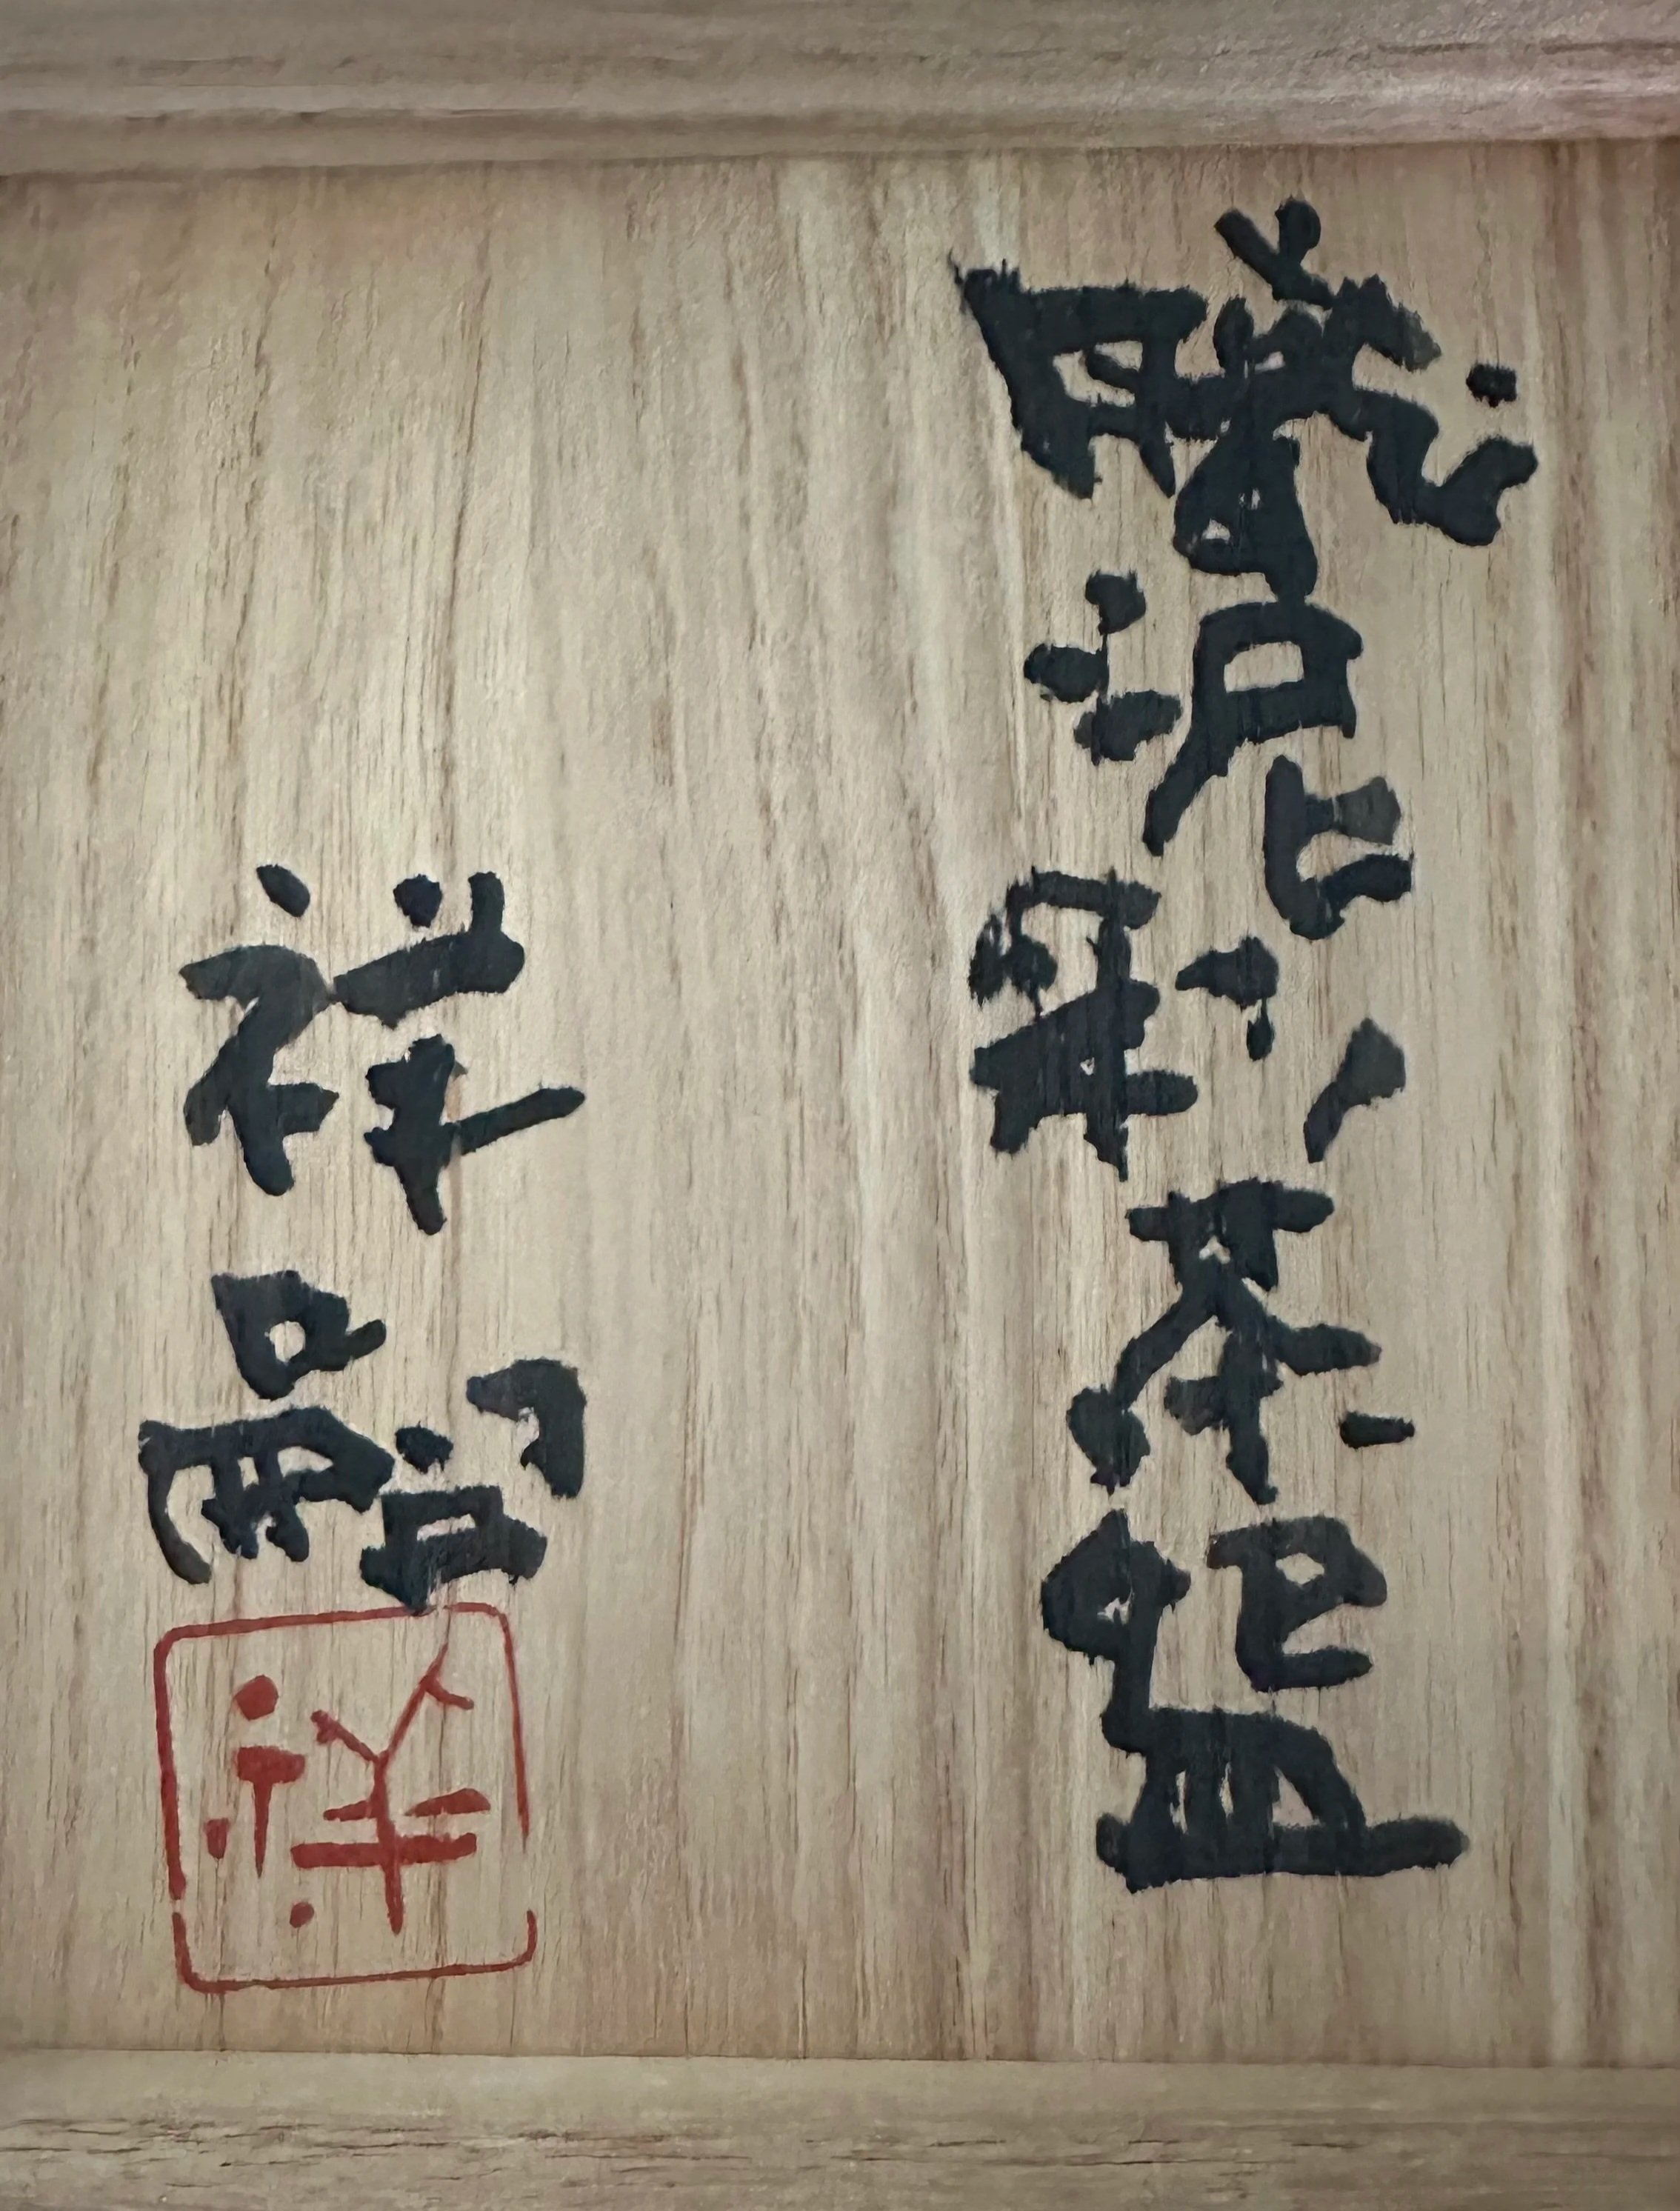 曦泥彩茶盌
祥嗣
祥